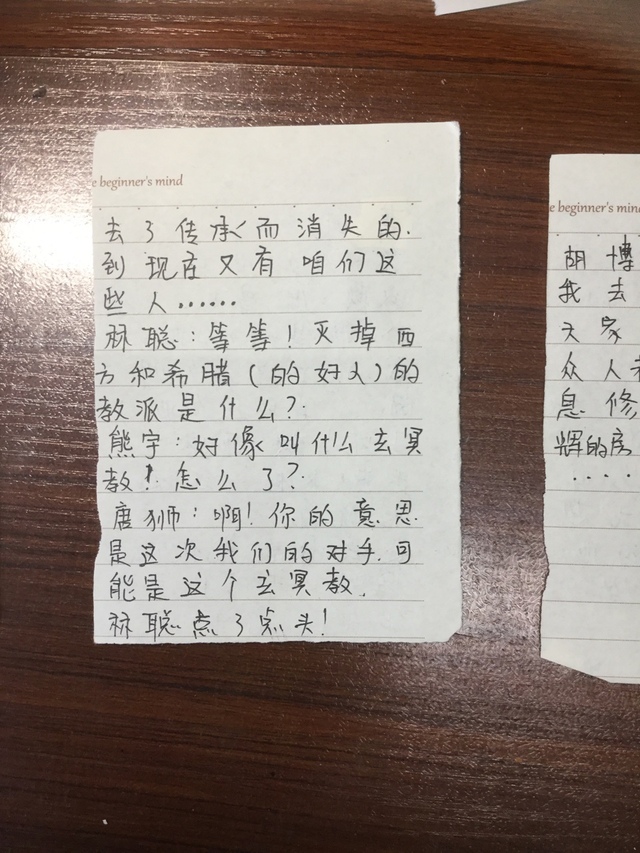 e beginner's mind
去了传承而消失的.
到现在又有咱们这
些人……
林聪:等等!灭掉西
方和希腊(的好人)的
教派是什么?
熊宇:好像叫什么玄冥
教!怎么了?
唐狮:啊!你的意思
是这次我们的对手.可
能是这个玄冥教.
林聪点了点头!
e beginner's mind
胡博
我去
大家
众人
息修
辉的房
····